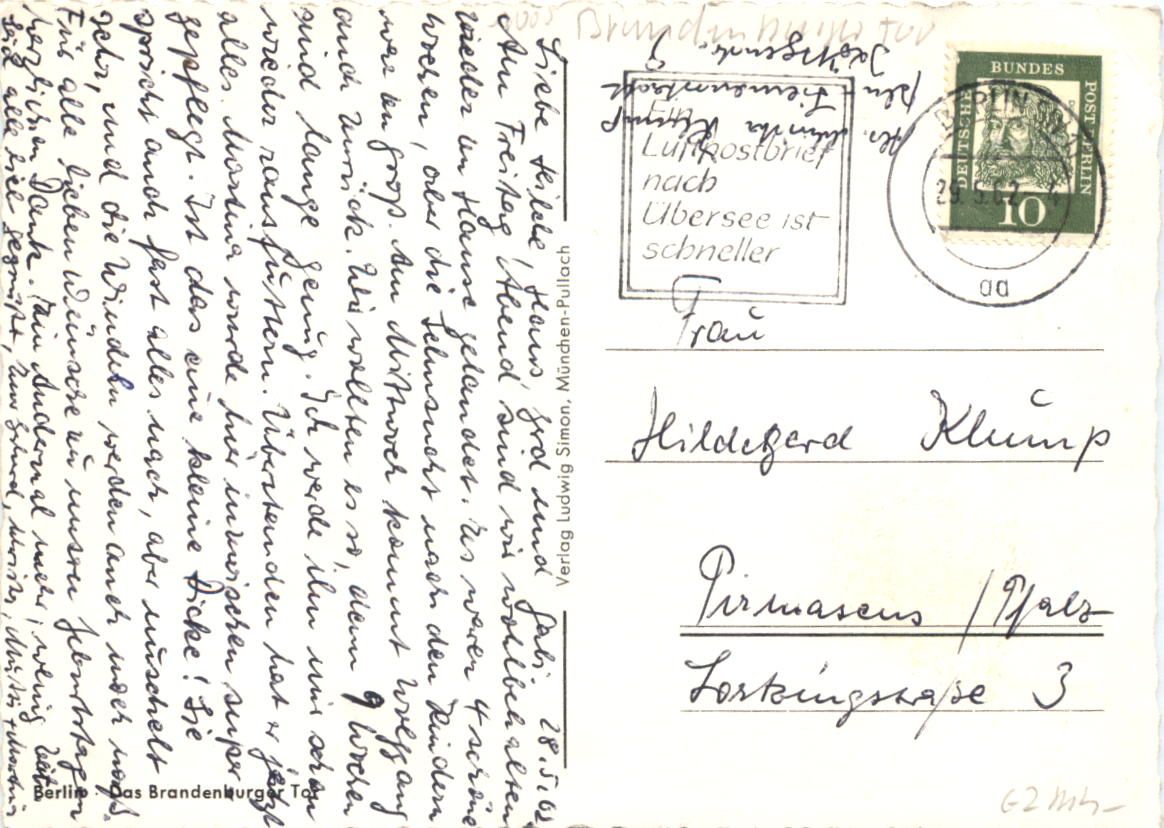 28.5.62
Liebe Hilde, Hans, Gerd und Gabi
Am Freitag Abend sind wir wohlbehalten
wieder zu Hause gelandet. Es waren 4 schöne
Wochen, aber die Sehnsucht nach den Kindern
war zu groß. Am Mittwoch kommt Wolfgang
auch zurück. Wir wollten es so, denn 9 Wochen
sind lange genug. Ich werde ihn mir schon
wieder rausfüttern. Überstanden hat er jetzt
alles. Martina wurde hier inzwischen super
gepflegt. Ist das eine kleine Dicke! Sie
spricht auch fast alles nach, aber nuschelt
sehr, und die Windeln werden auch noch naß.
Für alle lieben Wünsche zu unseren Geburtstagen
herzlichen Dank. Ein Andermal mehr, wenig Zeit
Seid alle viel gegrüßt,
Berlin · Das Brandenburger Tor
Verlag Ludwig Simon, München-Pullach
Brandenburger Tor
Ein
Luftpostbrief
nach
Übersee ist
schneller
BERLIN
29.5.62
aa
DEUTSCHE
BUNDES
POST BERLIN
10
Frau
Hildegard Klump
Pirmasens / Pfalz
Lortzingstraße 3